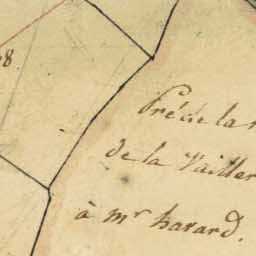 8
Pré de la
de la Vailler
à mr havard.